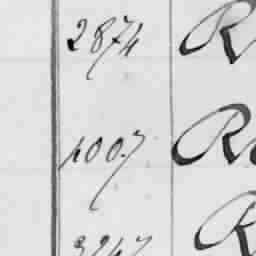 2874 R
4007 Ro
3247 R